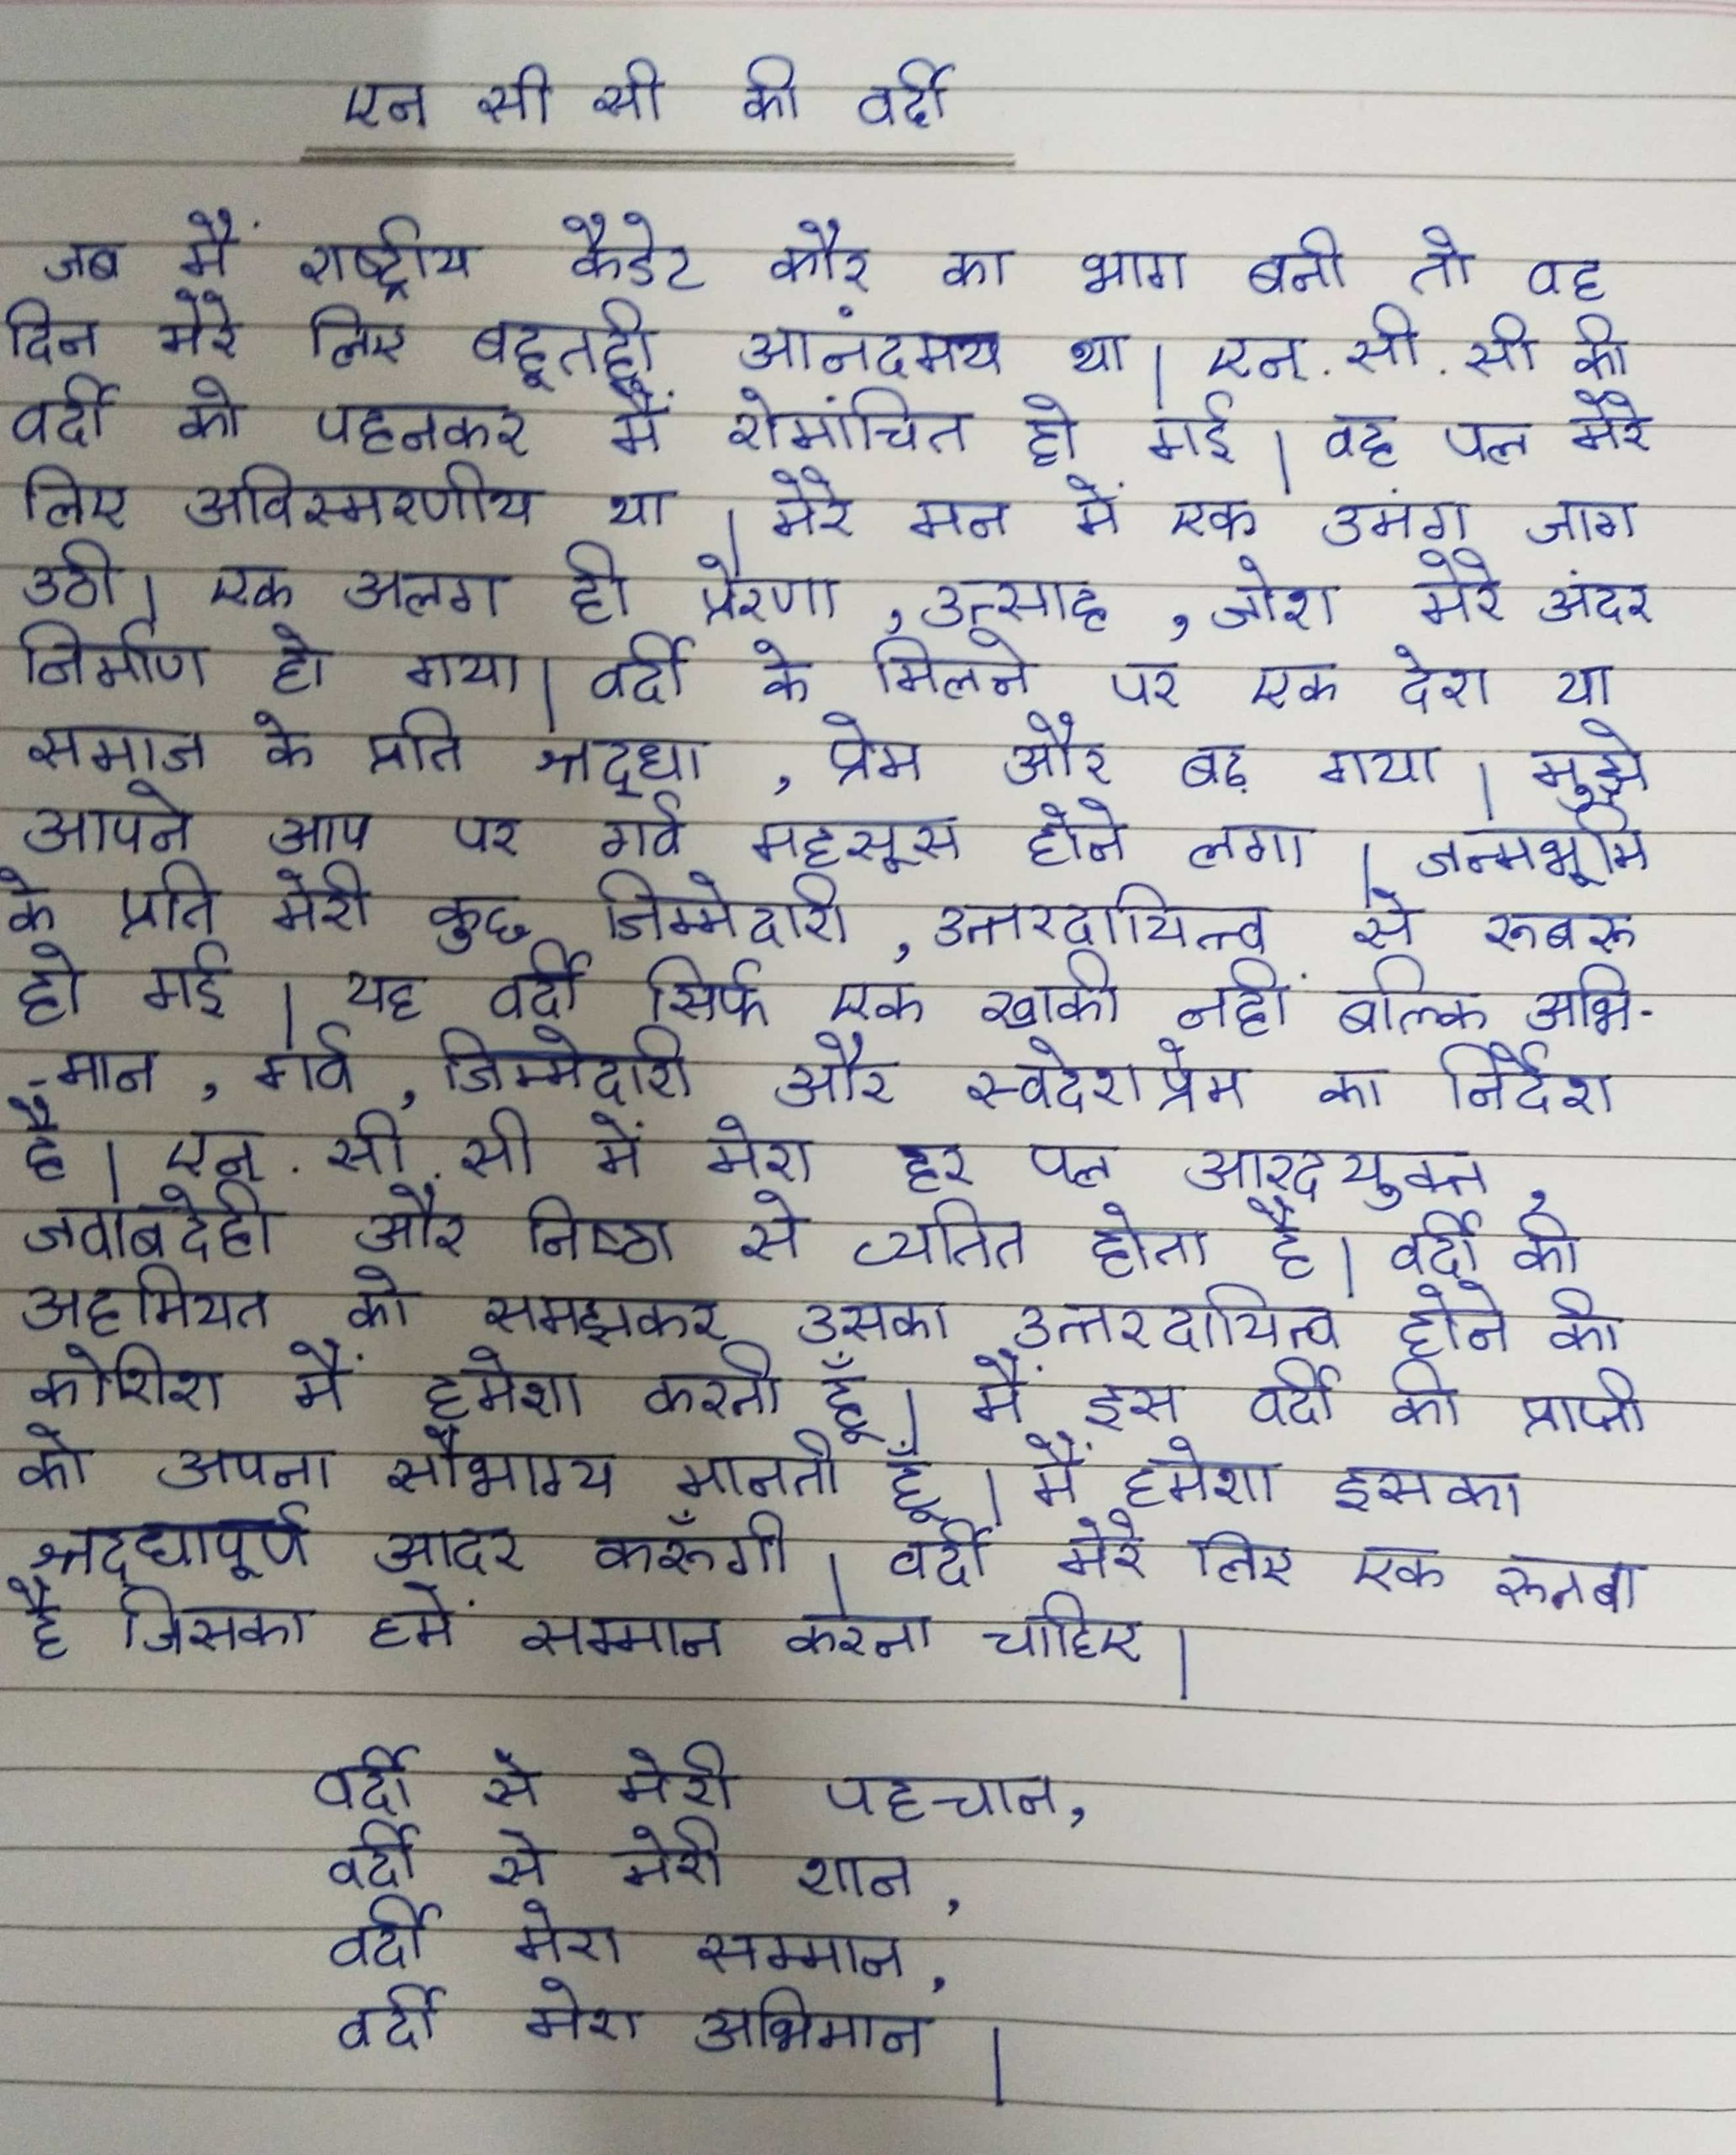 एन सी सी की वर्दी
जब मैं राष्ट्रीय कैडेट कौर का भाग बनी तो वह
दिन मेरे लिए बहूतही आनंदमय था। एन्.सी.सी की
वर्दी को पहनकर मैं रोमांचित हो गई। वह पल मेरे
लिए अविस्मरणीय था। मेरे मन में एक उमंग जाग
उठी। एक अलग ही प्रेरणा, उत्साह, जोश मेरे अंदर
निर्माण हो गया। वर्दी के मिलने पर एक देश या
समाज के प्रति श्रद्धा, प्रेम और बढ़ गया। मुझे
आपने आप पर गर्व महसूस होने लगा। जन्मभूमि
के प्रति मेरी कुछ जिम्मेदारी, उत्तरदायित्व से रूबरू
हो गई। यह वर्दी सिर्फ एक खाकी नहीं बल्कि अभि-
-मान, गर्व, जिम्मेदारी और स्वदेशप्रेम का निर्देश
है। एन्.सी.सी में मेरा हर पल आरदयुक्त,
जवाबदेही और निष्ठा से व्यतित होता है। वर्दी की
अहमियत को समझकर उसका उत्तरदायित्व होने की
कोशिश मैं हमेशा करती हूँ। मैं इस वर्दी की प्राप्ती
को अपना सौभाग्य मानती हूँ। मैं हमेशा इसका
श्रद्धापूर्ण आदर करूँगी। वर्दी मेरे लिए एक रूतबा
है जिसका हमें सम्मान करना चाहिए।
वर्दी से मेरी पहचान,
वर्दी से मेरी शान,
वर्दी मेरा सम्मान,
वर्दी मेरा अभिमान।